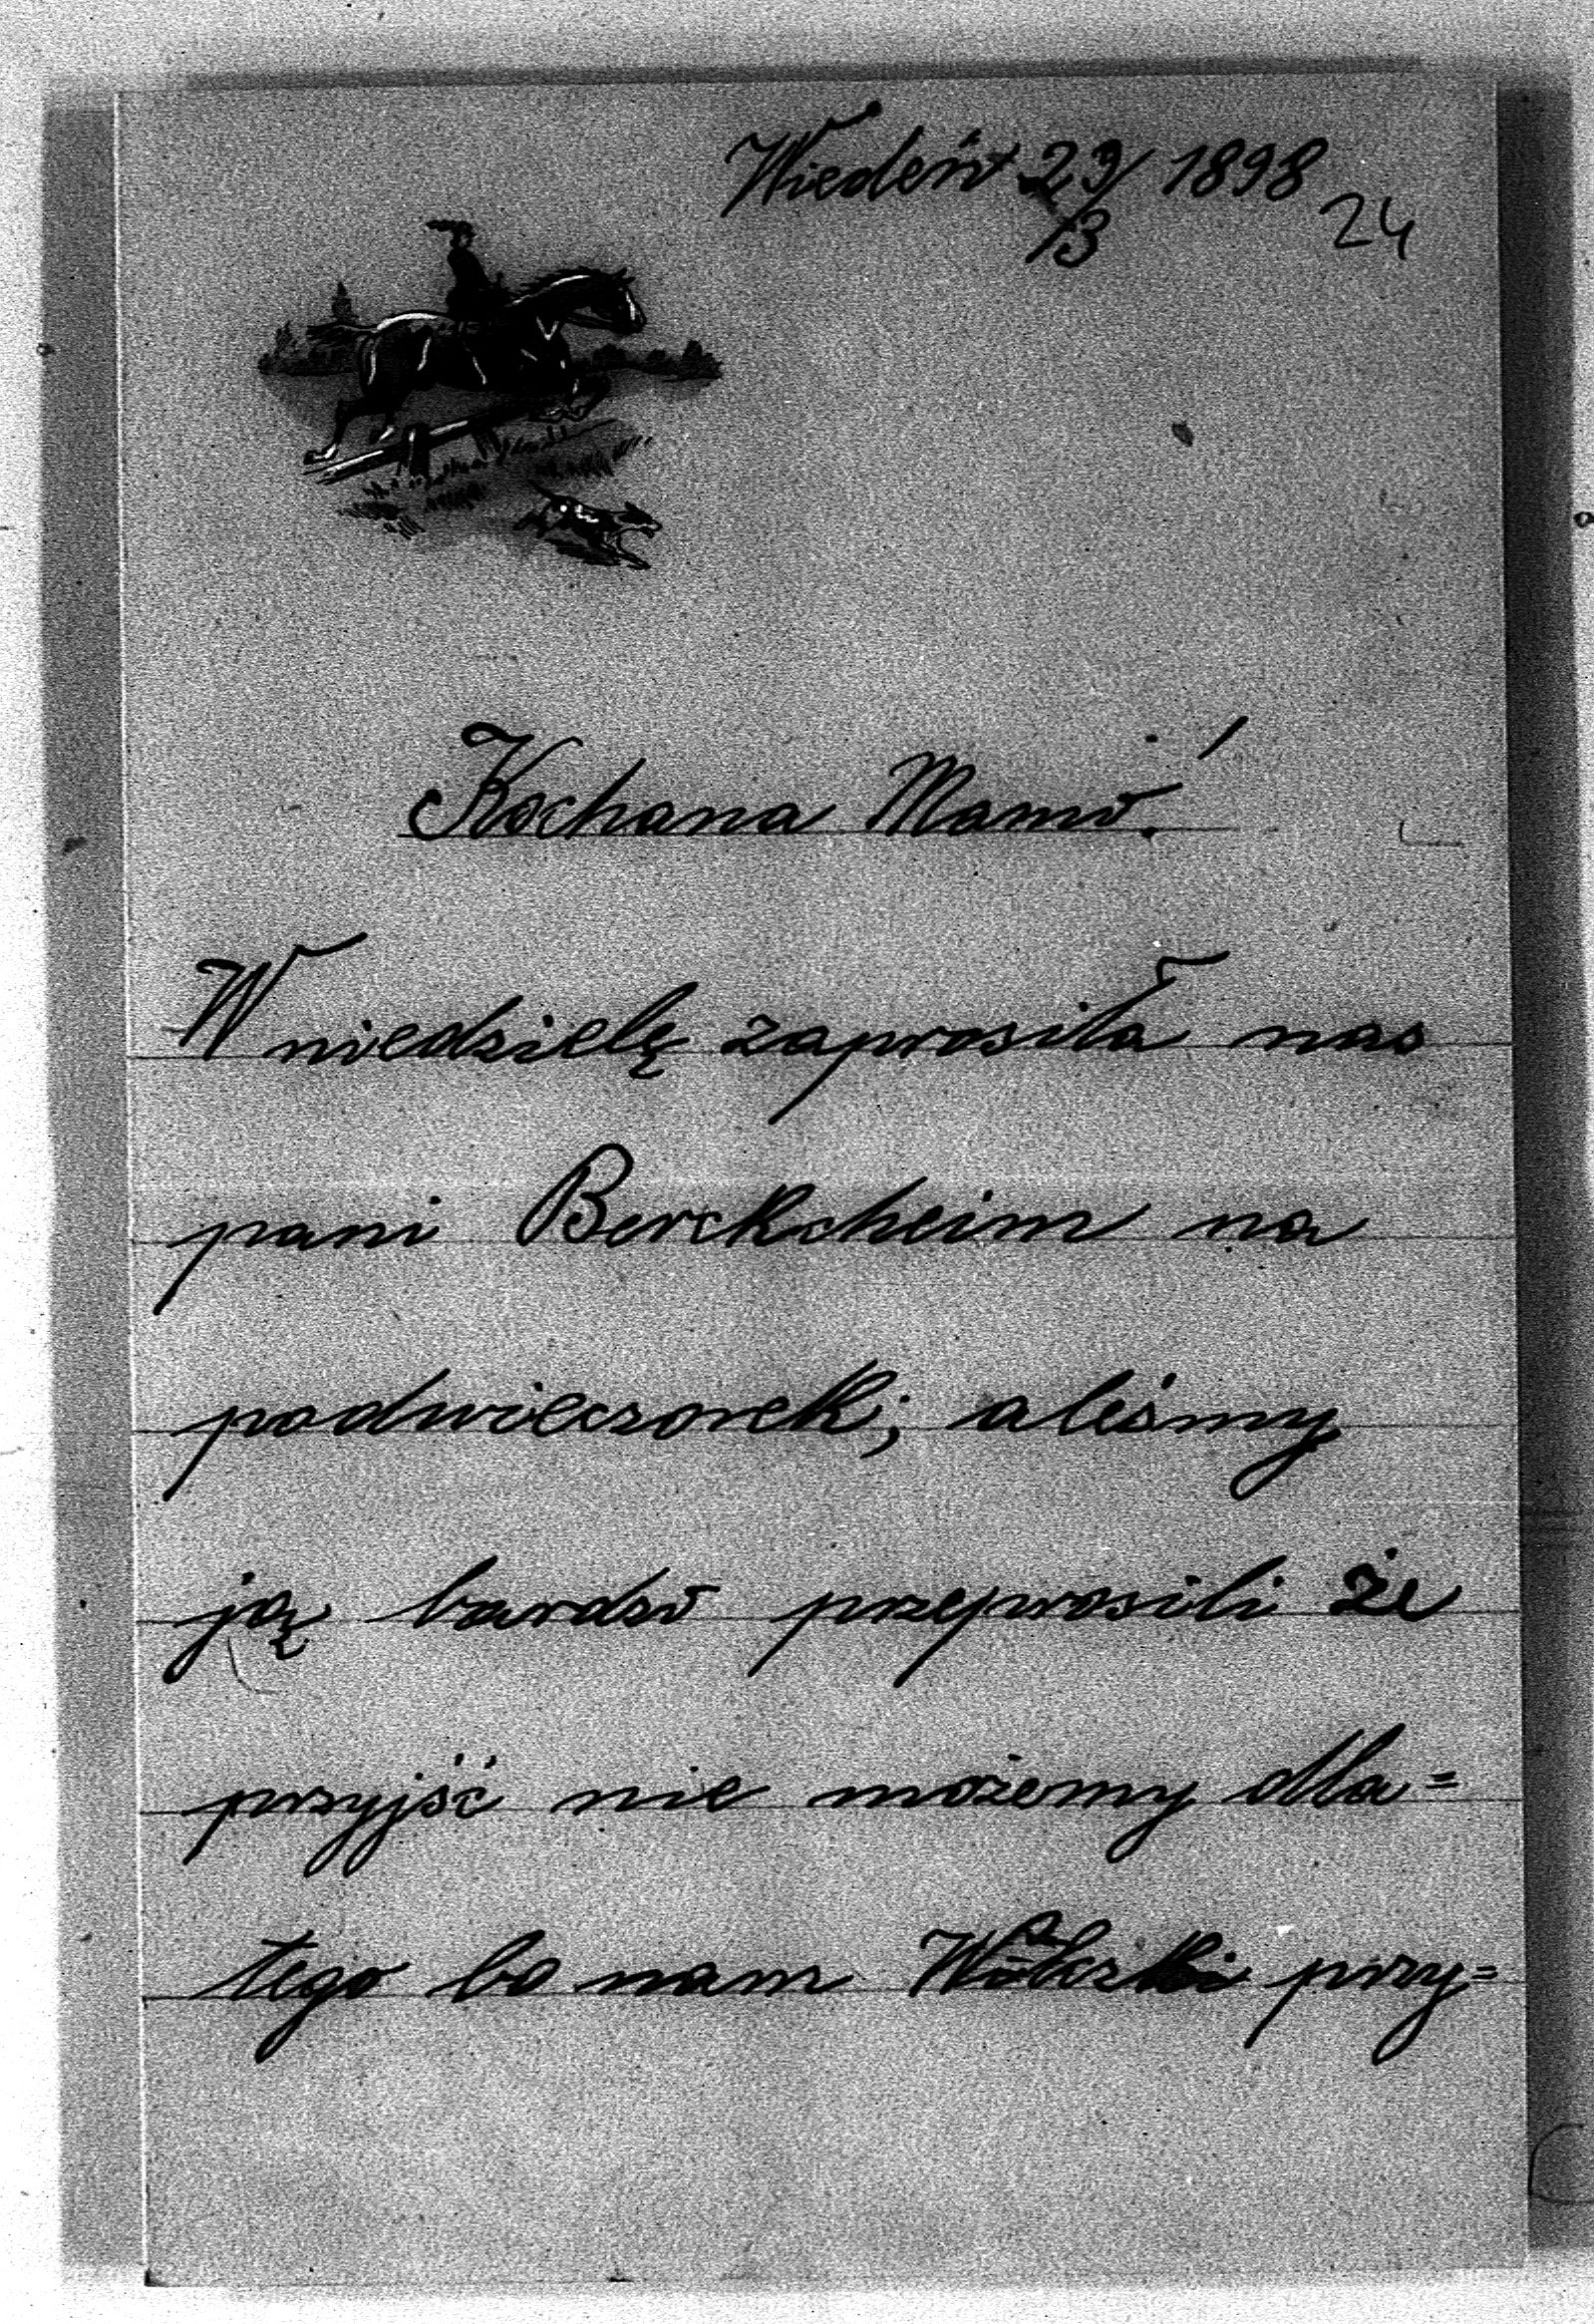 Wiedeń 29/3 1898
24
Kochana Mamo!
W niedzielę zaprosiła nas
pani Berckcheim na
podwieczorek; aleśmy
ją bardzo przeprosili że
przyjść nie możemy dla=
tego bo nam przy=